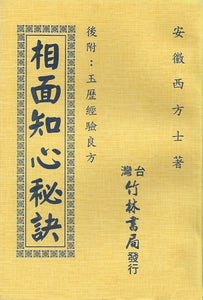 安徽西方士著
後附：玉歷經驗良方
相面知心秘訣
台灣竹林書局發行